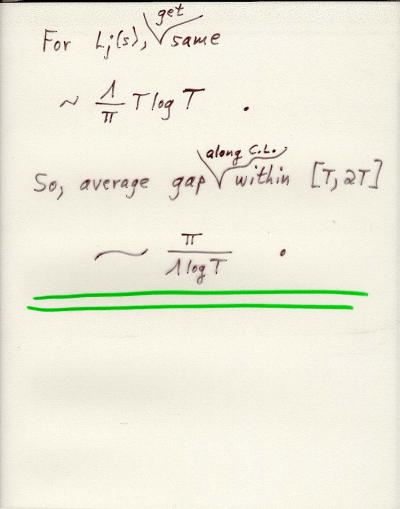 For Lj(s), get same
~ Λ/π T log T .
So, average gap along C.L. within [T, 2T]
~ π / Λ log T .